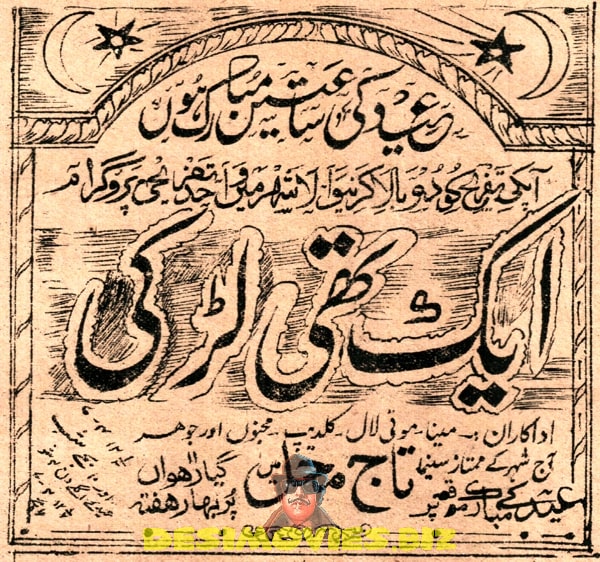 عید کی ساعتیں مبارک ہوں
آپکی تفریح کو دوبالا کرنیوالا شہر میں واحد تفریحی پروگرام
ایک تھی لڑکی
اداکاران :۔ مینا۔ موتی لال۔ کلدیپ۔ مجنوں اور جوھر
آج شہر کے ممتاز سینما تاج محل میں گیارھواں
عید کے مبارک موقعہ پر پُر بہار ھفتہ
DESIMOVIES.BIZ